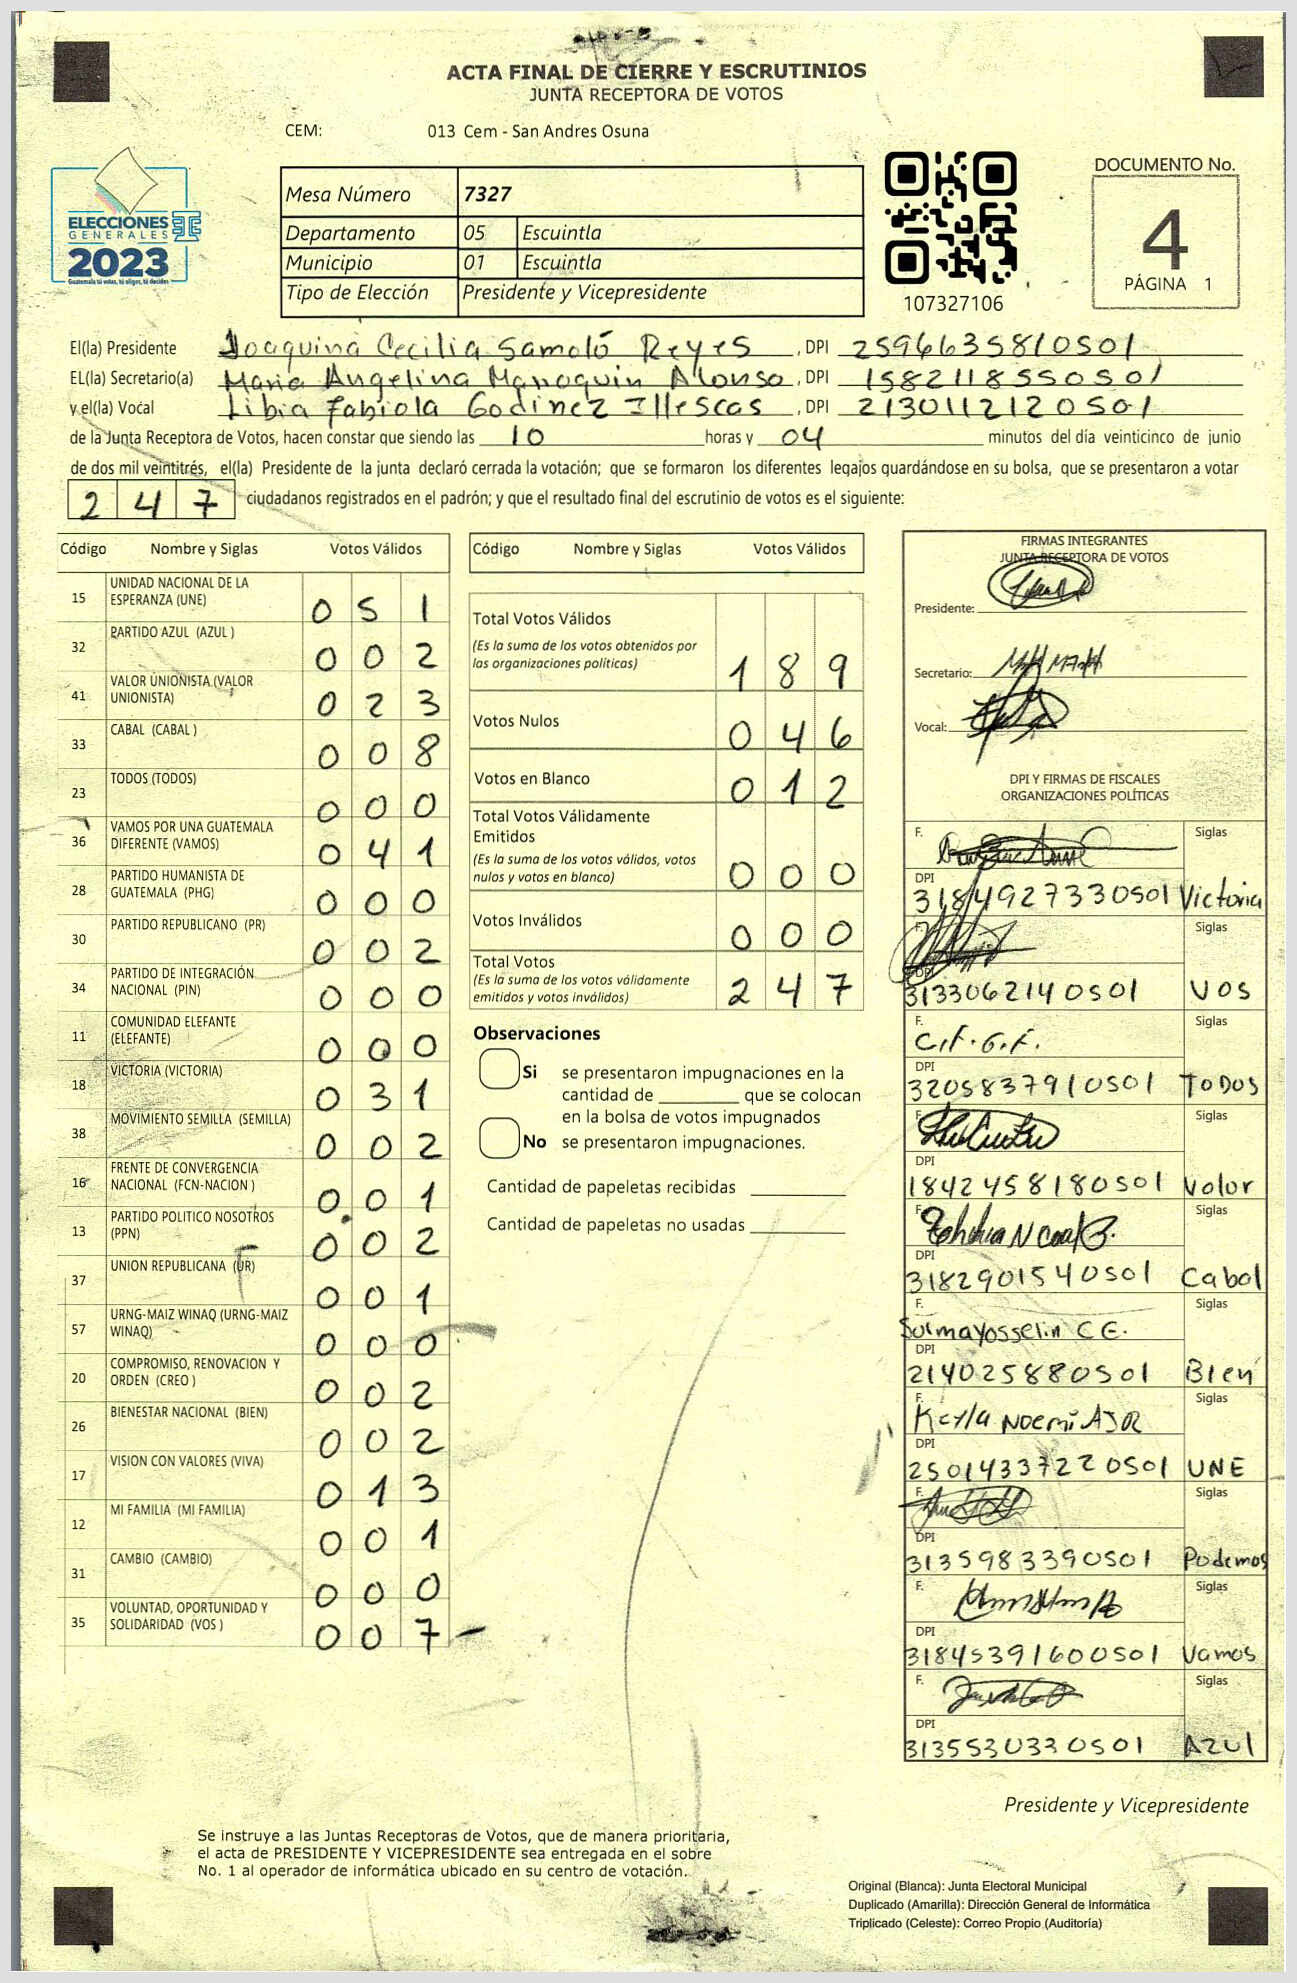 ACTA FINAL DE CIERRE Y ESCRUTINIOS
JUNTA RECEPTORA DE VOTOS
CEM: 013 Cem - San Andres Osuna
ELECCIONES
GENERALES
2023
Guatemala tú votas, tú eliges, tú decides
Mesa Número 7327
Departamento 05 Escuintla
Municipio 01 Escuintla
Tipo de Elección Presidente y Vicepresidente
107327106
DOCUMENTO No.
4
PÁGINA 1
El(la) Presidente Joaquina Cecilia Samoló Reyes, DPI 2596635810501
EL(la) Secretario(a) Maria Angelina Manoquin Alonso, DPI 1582118550501
y el(la) Vocal Libia Fabiola Godinez Illescas, DPI 2130112120501
de la Junta Receptora de Votos, hacen constar que siendo las 10 horas y 04 minutos del día veinticinco de junio
de dos mil veintitrés, el(la) Presidente de la junta declaró cerrada la votación; que se formaron los diferentes legajos guardándose en su bolsa, que se presentaron a votar
247 ciudadanos registrados en el padrón; y que el resultado final del escrutinio de votos es el siguiente:
Código Nombre y Siglas Votos Válidos
15 UNIDAD NACIONAL DE LA ESPERANZA (UNE) 051
32 PARTIDO AZUL (AZUL ) 002
41 VALOR UNIONISTA (VALOR UNIONISTA) 023
33 CABAL (CABAL ) 008
23 TODOS (TODOS) 000
36 VAMOS POR UNA GUATEMALA DIFERENTE (VAMOS) 041
28 PARTIDO HUMANISTA DE GUATEMALA (PHG) 000
30 PARTIDO REPUBLICANO (PR) 002
34 PARTIDO DE INTEGRACIÓN NACIONAL (PIN) 000
11 COMUNIDAD ELEFANTE (ELEFANTE) 000
18 VICTORIA (VICTORIA) 031
38 MOVIMIENTO SEMILLA (SEMILLA) 002
16 FRENTE DE CONVERGENCIA NACIONAL (FCN-NACION ) 001
13 PARTIDO POLITICO NOSOTROS (PPN) 002
37 UNION REPUBLICANA (UR) 001
57 URNG-MAIZ WINAQ (URNG-MAIZ WINAQ) 000
20 COMPROMISO, RENOVACION Y ORDEN (CREO ) 002
26 BIENESTAR NACIONAL (BIEN) 002
17 VISION CON VALORES (VIVA) 013
12 MI FAMILIA (MI FAMILIA) 001
31 CAMBIO (CAMBIO) 000
35 VOLUNTAD, OPORTUNIDAD Y SOLIDARIDAD (VOS ) 007
Código Nombre y Siglas Votos Válidos
Total Votos Válidos 189
(Es la suma de los votos obtenidos por
las organizaciones políticas)
Votos Nulos 046
Votos en Blanco 012
Total Votos Válidamente
Emitidos 000
(Es la suma de los votos válidos, votos
nulos y votos en blanco)
Votos Inválidos 000
Total Votos 247
(Es la suma de los votos válidamente
emitidos y votos inválidos)
Observaciones
Si se presentaron impugnaciones en la
cantidad de ________ que se colocan
en la bolsa de votos impugnados
No se presentaron impugnaciones.
Cantidad de papeletas recibidas
Cantidad de papeletas no usadas
FIRMAS INTEGRANTES
JUNTA RECEPTORA DE VOTOS
Presidente:
Secretario:
Vocal:
DPI Y FIRMAS DE FISCALES
ORGANIZACIONES POLÍTICAS
F. Siglas
DPI
3184927330501 Victoria
F. Siglas
DPI
3133062140501 VOS
F. C.F.G.F. Siglas
DPI
3205837910501 TODOS
F. Siglas
DPI
1842458180501 Valor
F. Siglas
DPI
3182901540501 Cabal
F. Siglas
Surmayosselin C E.
DPI
214025880501 Bien
F. Siglas
Karla Noemi AJR
DPI
25014337220501 UNE
F. Siglas
DPI
3135983390501 Podemos
F. Siglas
DPI
31845391600501 Vamos
F. Siglas
DPI
3135530330501 AZUL
Presidente y Vicepresidente
Se instruye a las Juntas Receptoras de Votos, que de manera prioritaria,
el acta de PRESIDENTE Y VICEPRESIDENTE sea entregada en el sobre
No. 1 al operador de informática ubicado en su centro de votación.
Original (Blanca): Junta Electoral Municipal
Duplicado (Amarilla): Dirección General de Informática
Triplicado (Celeste): Correo Propio (Auditoría)